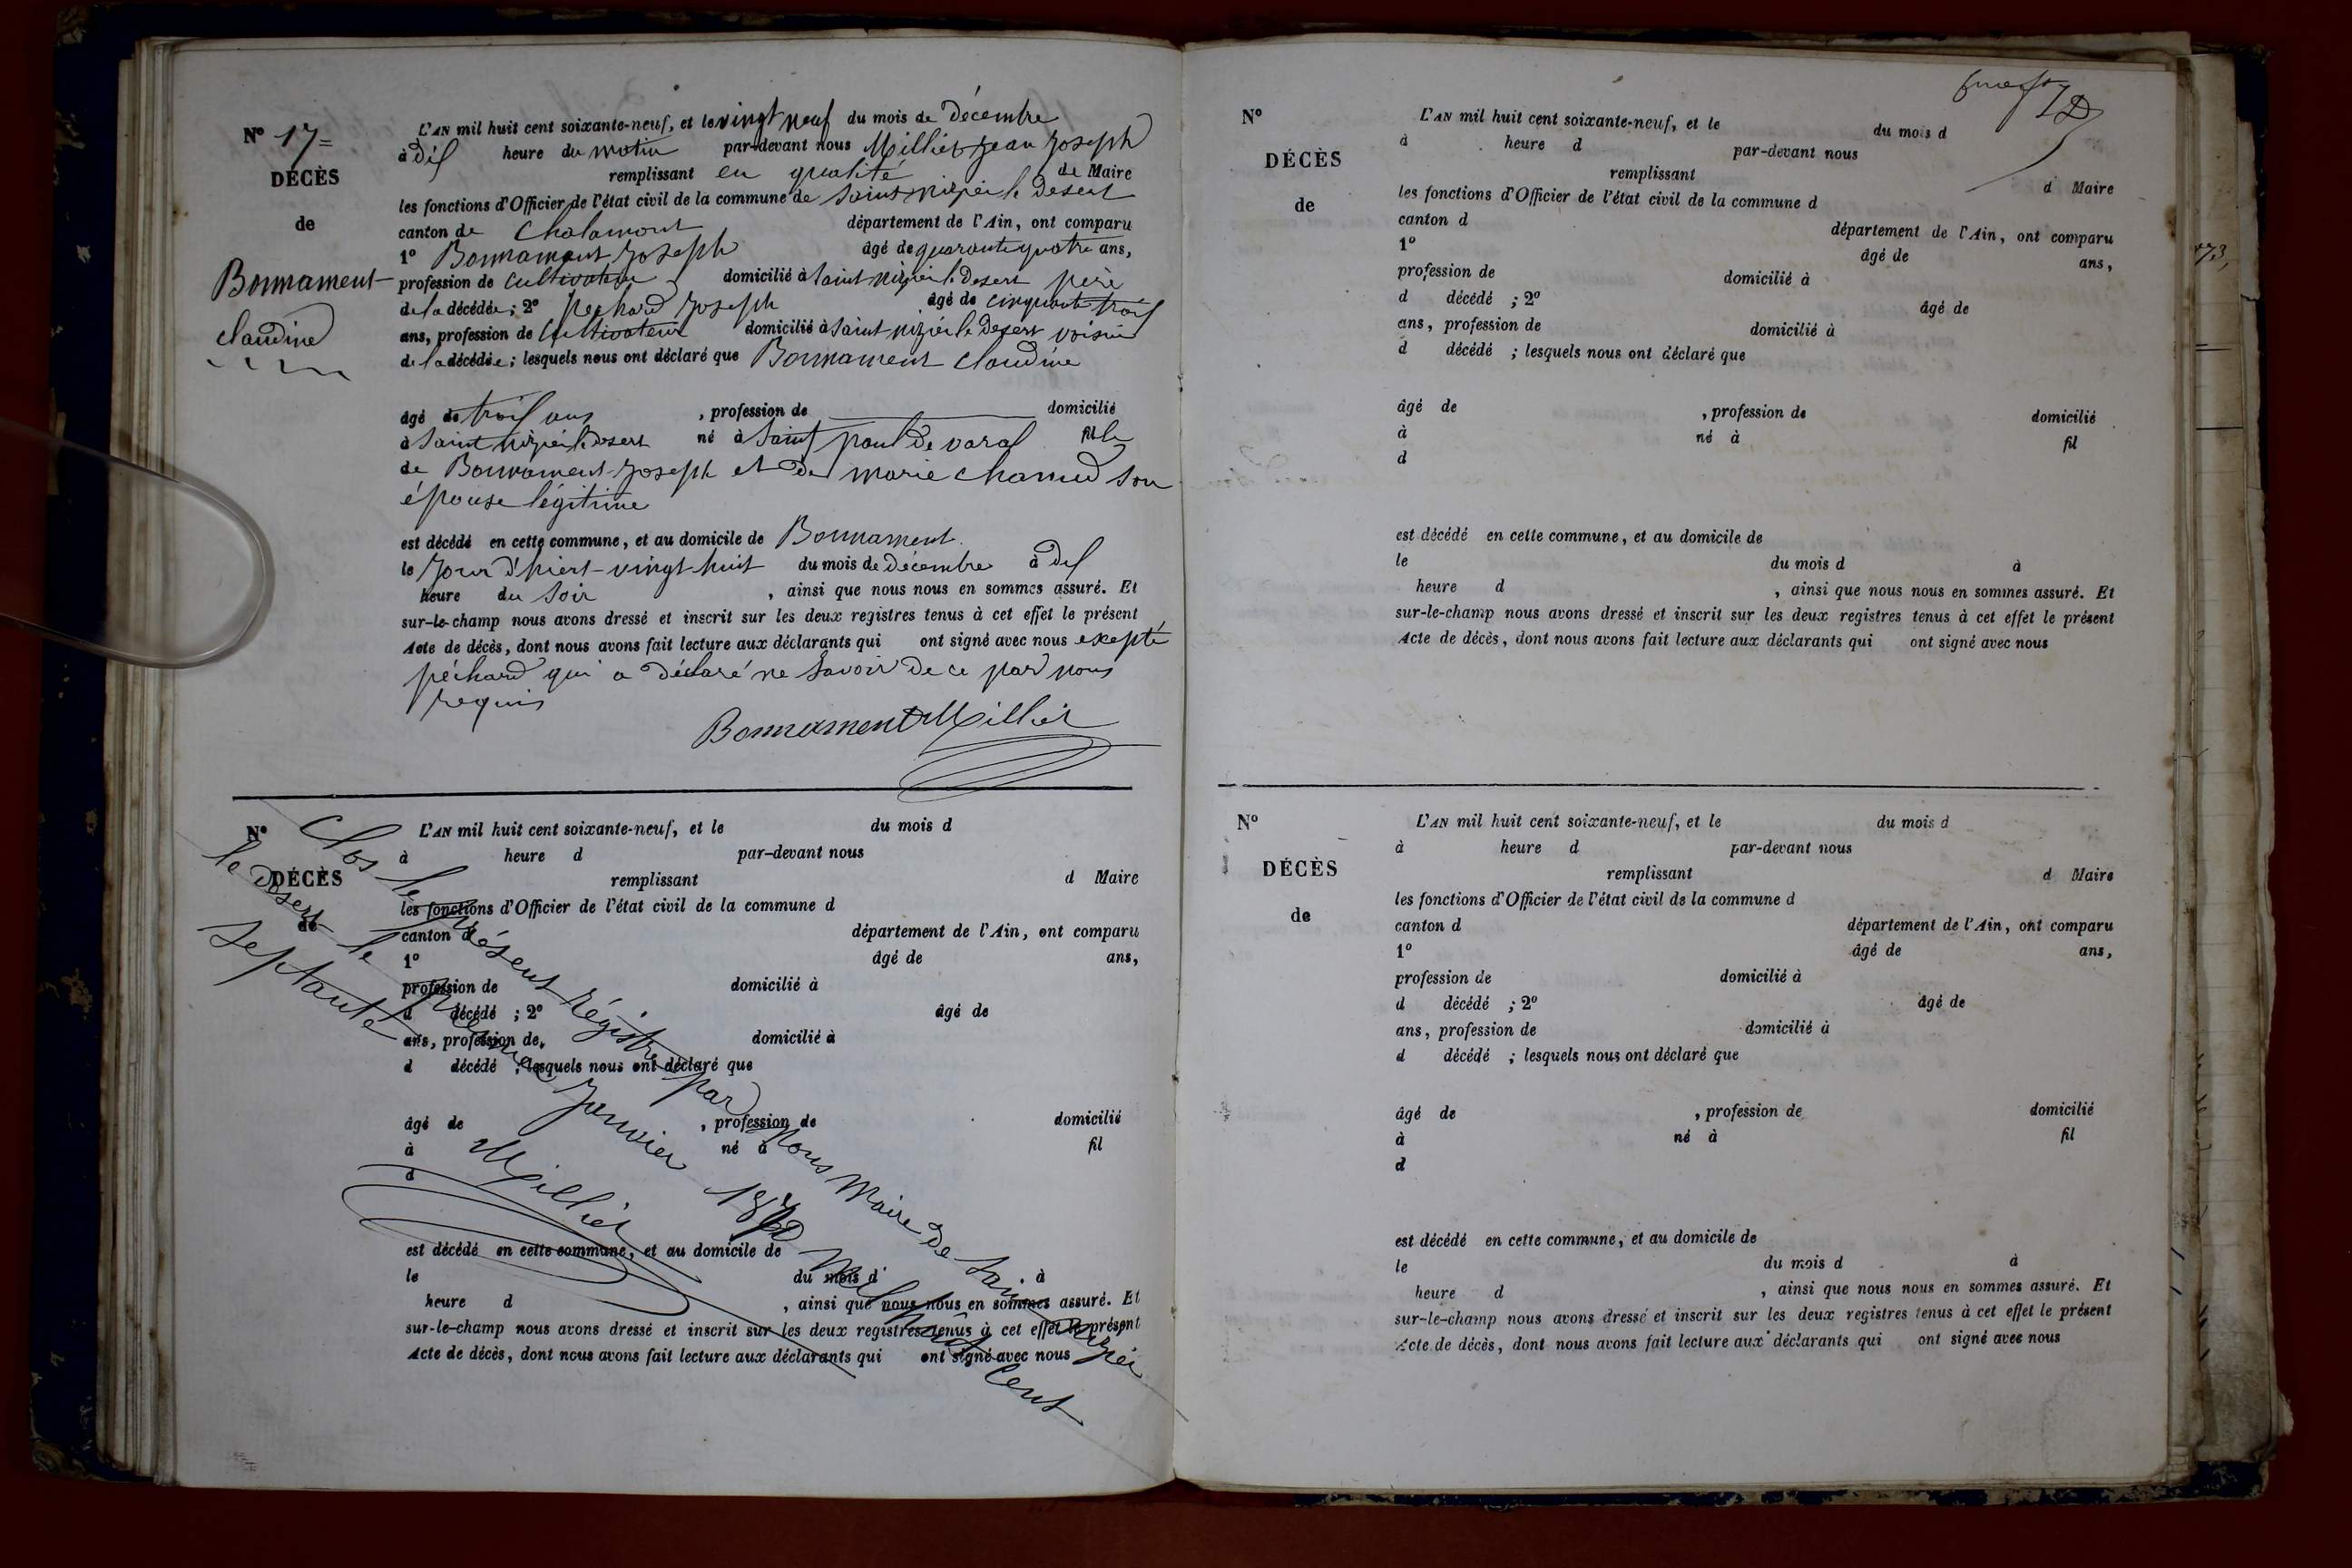 N° 17=
DÉCÈS
de
Bonnament
claudine
L'AN mil huit cent soixante-neuf, et le vingt neuf du mois de Décembre
à dix heure du matin par-devant nous Milliet Jean Joseph
remplissant en qualité de Maire
les fonctions d'Officier de l'état civil de la commune de Saint nizier le Desert
canton de Chalamont département de l'Ain, ont comparu
1° Bonnament Joseph âgé de quarante quatre ans,
profession de Cultivateur domicilié à Saint nizier le Desert père
de la décédée; 2° Pechard Joseph âgé de cinquante trois
ans, profession de Cultivateur domicilié à Saint nizier le Desert voisin
de la décédée; lesquels nous ont déclaré que Bonnament Claudine
âgé de trois ans, profession de domicilié
à Saint nizier le Desert né à Saint paul de varax fille
de Bonnament Joseph et de marie chanud son
épouse légitime
est décédé en cette commune, et au domicile de Bonnament.
le Jour d'hiert vingt huit du mois de Décembre à dix
heure du Soir, ainsi que nous nous en sommes assuré. Et
sur-le-champ nous avons dressé et inscrit sur les deux registres tenus à cet effet le présent
Acte de décès, dont nous avons fait lecture aux déclarants qui ont signé avec nous excepté
péchard qui a déclaré ne Savoir de ce par nous
requis
Bonnament Milliet
N°
DÉCÈS
de
L'AN mil huit cent soixante-neuf, et le du mois d
à heure d par-devant nous
remplissant d Maire
les fonctions d'Officier de l'état civil de la commune d
canton d département de l'Ain, ont comparu
1° âgé de ans,
profession de domicilié à
d décédé ; 2° âgé de
ans, profession de domicilié à
d décédé ; lesquels nous ont déclaré que
âgé de , profession de domicilié
à né à fil
d
est décédé en cette commune, et au domicile de
le du mois d à
heure d , ainsi que nous nous en sommes assuré. Et
sur-le-champ nous avons dressé et inscrit sur les deux registres tenus à cet effet le présent
Acte de décès, dont nous avons fait lecture aux déclarants qui ont signé avec nous
Clos le présent régistre par Nous Maire de Saint nizier
le Desert le premier Janvier 1870 Mil huit Cent
Septante
Milliet
N°
DÉCÈS
de
L'AN mil huit cent soixante-neuf, et le du mois d
à heure d par-devant nous
remplissant d Maire
les fonctions d'Officier de l'état civil de la commune d
canton d département de l'Ain, ont comparu
1° âgé de ans,
profession de domicilié à
d décédé ; 2° âgé de
ans, profession de domicilié à
d décédé ; lesquels nous ont déclaré que
âgé de , profession de domicilié
à né à fil
d
est décédé en cette commune, et au domicile de
le du mois d à
heure d , ainsi que nous nous en sommes assuré. Et
sur-le-champ nous avons dressé et inscrit sur les deux registres tenus à cet effet le présent
Acte de décès, dont nous avons fait lecture aux déclarants qui ont signé avec nous
N°
DÉCÈS
de
L'AN mil huit cent soixante-neuf, et le du mois d
à heure d par-devant nous
remplissant d Maire
les fonctions d'Officier de l'état civil de la commune d
canton d département de l'Ain, ont comparu
1° âgé de ans,
profession de domicilié à
d décédé ; 2° âgé de
ans, profession de domicilié à
d décédé ; lesquels nous ont déclaré que
âgé de , profession de domicilié
à né à fil
d
est décédé en cette commune, et au domicile de
le du mois d à
heure d , ainsi que nous nous en sommes assuré. Et
sur-le-champ nous avons dressé et inscrit sur les deux registres tenus à cet effet le présent
Acte de décès, dont nous avons fait lecture aux déclarants qui ont signé avec nous